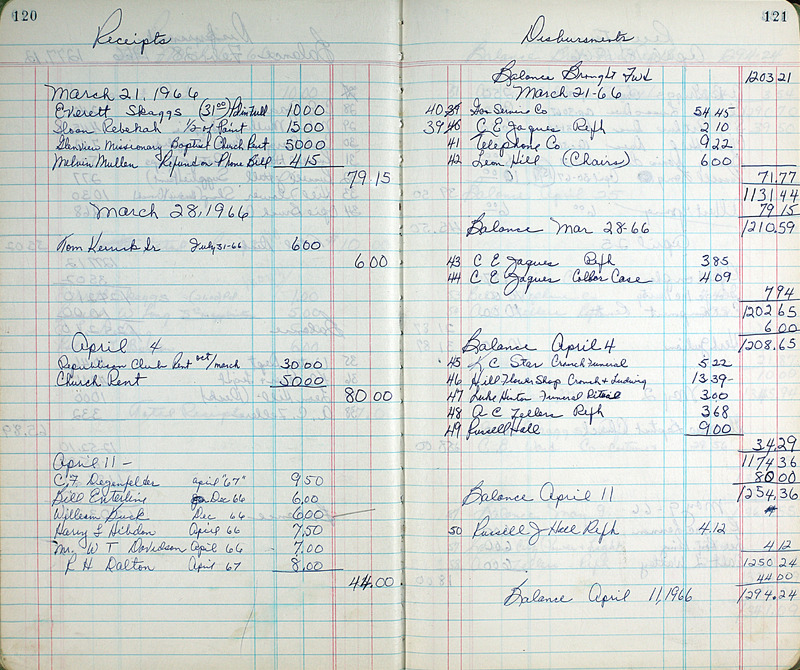 120
Receipts
March 21, 1966
Everett Skaggs (31⁰⁰) Pd in full 10 00
Sloan Rebekah 1/2 of Paint 15 00
Glenview Missionary Baptist Church Rent 50 00
Melvin Mullen Refund on Phone Bill 4 15
79.15
March 28, 1966
Tom Kerrick Sr July 31-66 6 00
6 00
April 4
Republican Club Rent oct/march 30 00
Church Rent 50 00
80 00
April 11 —
C. F. Degenfelder april "67" 9 50
Bill Enterline Dec 66 6.00
William Buck Dec 66 6.00
Harry L Hibdon April 66 7.50
Mr. W T Davidson April 66 7.00
R H Dalton April 67 8.00
44.00
121
Disbursments
Balance Brought Fwd 1203 21
March 21-66
40 39 Ice Service Co 54.45
39 40 C E Jaques Refh 2 10
41 Telephone Co 9 22
42 Leon Hill (Chairs) 6 00
71.77
1131 44
79 15
Balance Mar 28-66 1210.59
43 C E Jaques Refh 3 85
44 C E Jaques Case 4 09
7 94
1202 65
6 00
Balance April 4 1208.65
45 K C Star Crouch Funeral 5 22
46 Hill Flower Shop Crouch & Ludwig 13 39-
47 Luke Hinton Funeral 3 00
48 A C Zellers Refh 3 68
49 Russell Hall 9 00
34.29
1174 36
80 00
Balance April 11 1254.36
50 Russell J Hall Refh 4.12
4 12
1250 24
44 00
Balance April 11, 1966 1294.24